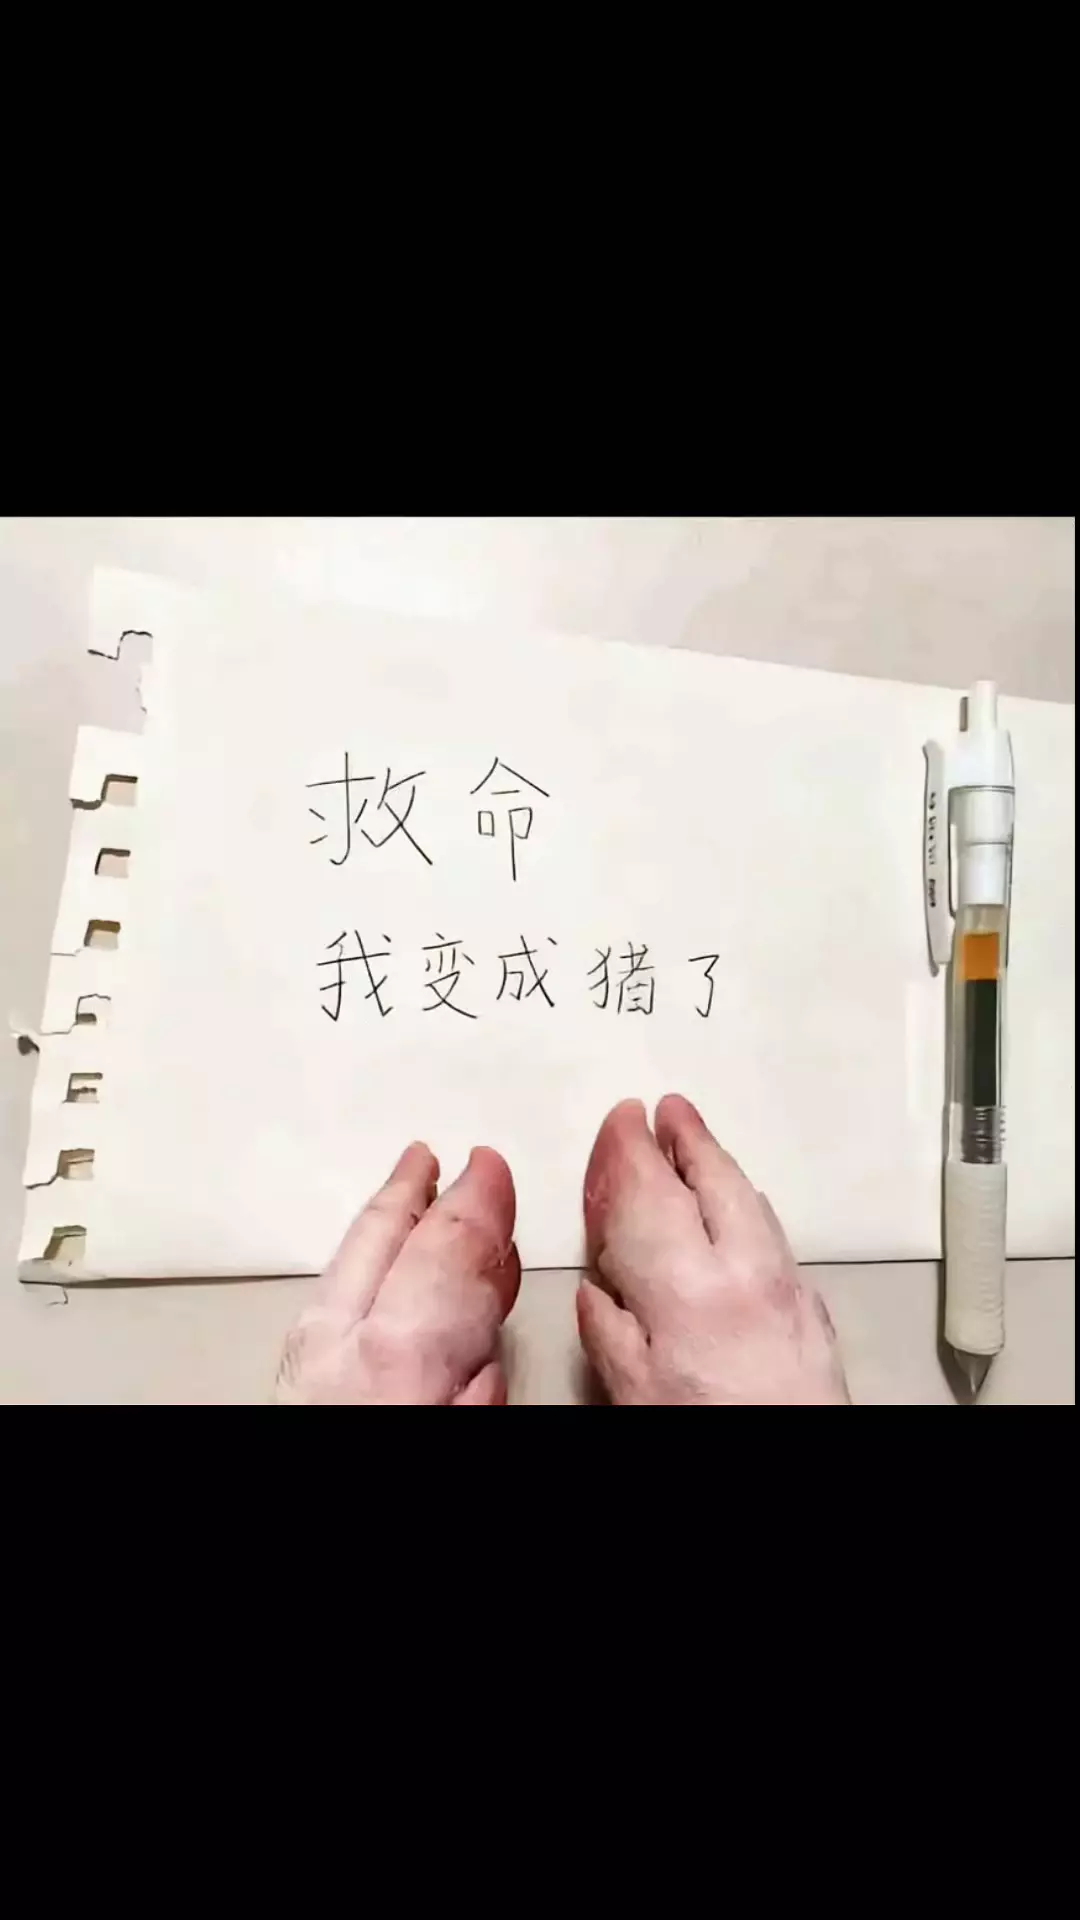 救命
我变成猪了